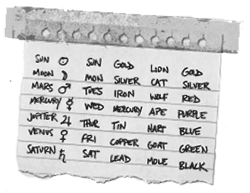 SUN ☉ SUN GOLD LION GOLD
MOON ☽ MON SILVER CAT SILVER
MARS ♂ TUES IRON WOLF RED
MERCURY ☿ WED MERCURY APE PURPLE
JUPITER ♃ THUR TIN HART BLUE
VENUS ♀ FRI COPPER GOAT GREEN
SATURN ♄ SAT LEAD MOLE BLACK